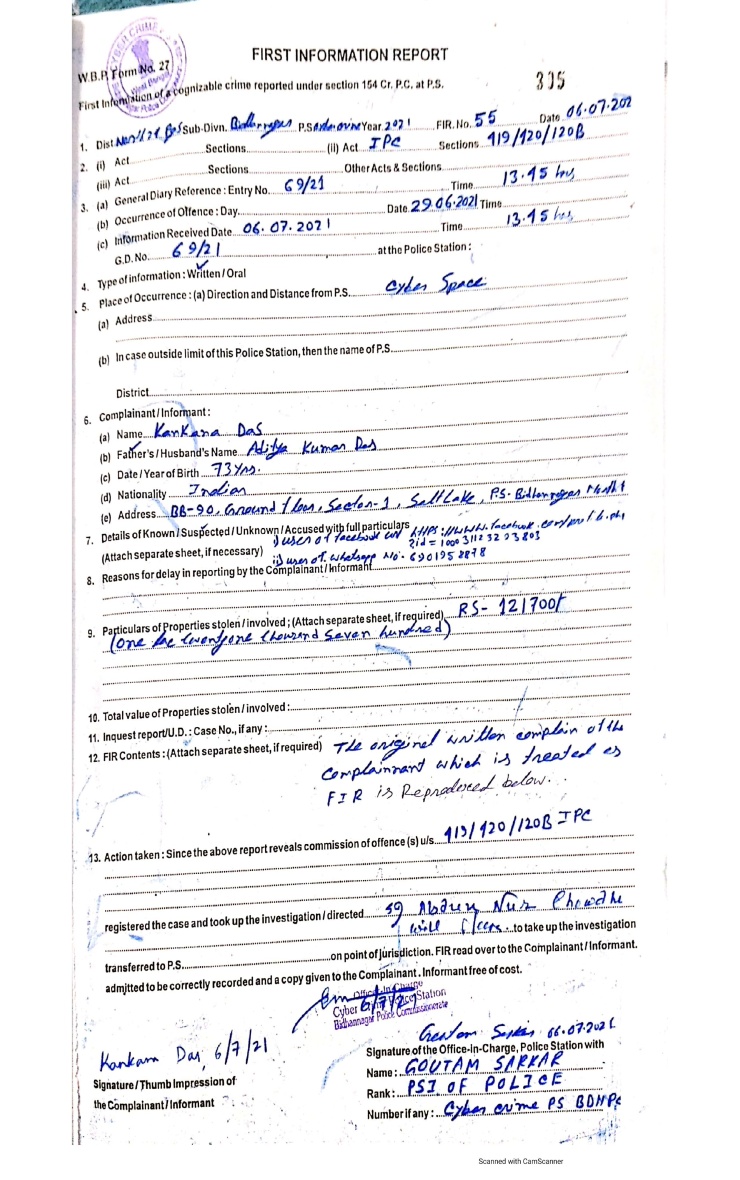 CYBER CRIME
West Bengal
FIRST INFORMATION REPORT
W.B.P. Form No. 27
335
First Information of a cognizable crime reported under section 154 Cr. P.C. at P.S.
1. Dist North 24 Pgs Sub-Divn. Bidhannagar P.S. Year 2021 FIR. No. 55 Date 06.07.202
2. (i) Act Sections (ii) Act IPC Sections 419/420/120B
(iii) Act Sections Other Acts & Sections
3. (a) General Diary Reference : Entry No. 69/21 Time 13.45 hrs
(b) Occurrence of Offence : Day Date 29.06.2021 Time
(c) Information Received Date 06.07.2021 Time 13.45 hrs
G.D. No. 69/21 at the Police Station :
4. Type of information : Written / Oral
5. Place of Occurrence : (a) Direction and Distance from P.S. Cyber Space
(a) Address
(b) In case outside limit of this Police Station, then the name of P.S.
District
6. Complainant / Informant :
(a) Name Kankana Das
(b) Father's / Husband's Name Aditya Kumar Das
(c) Date / Year of Birth 73 Yrs.
(d) Nationality Indian
(e) Address BB-90, Ground floor, Sector-1, Salt Lake, PS- Bidhannagar North
7. Details of Known / Suspected / Unknown / Accused with full particulars i) user of facebook url https://www.facebook.com/profile.php
(Attach separate sheet, if necessary) ?id=100031123293803
ii) user of whatsapp No- 6901952878
8. Reasons for delay in reporting by the Complainant / Informant
9. Particulars of Properties stolen / involved ; (Attach separate sheet, if required) RS- 121700/
(one lac twentyone thousand seven hundred)
10. Total value of Properties stolen / involved :
11. Inquest report / U.D. : Case No., if any :
12. FIR Contents : (Attach separate sheet, if required) The original written complain of the
complainnant which is treated as
FIR is Reproduced below.
13. Action taken : Since the above report reveals commission of offence (s) u/s. 419/420/120B IPC
registered the case and took up the investigation / directed SI Abdun Nur Chowdhu
will please to take up the investigation
transferred to P.S. on point of jurisdiction. FIR read over to the Complainant / Informant.
admjtted to be correctly recorded and a copy given to the Complainant. Informant free of cost.
6/7/21
Officer-In-Charge
Cyber Crime Police Station
Bidhannagar Police Commissionerate
Goutam Sarkar 06.07.2021
Kankana Das, 6/7/21
Signature of the Office-In-Charge, Police Station with
Name : GOUTAM SARKAR
Signature / Thumb Impression of
Rank : PSI OF POLICE
the Complainant / Informant
Number if any : Cyber crime PS BDNPC
Scanned with CamScanner